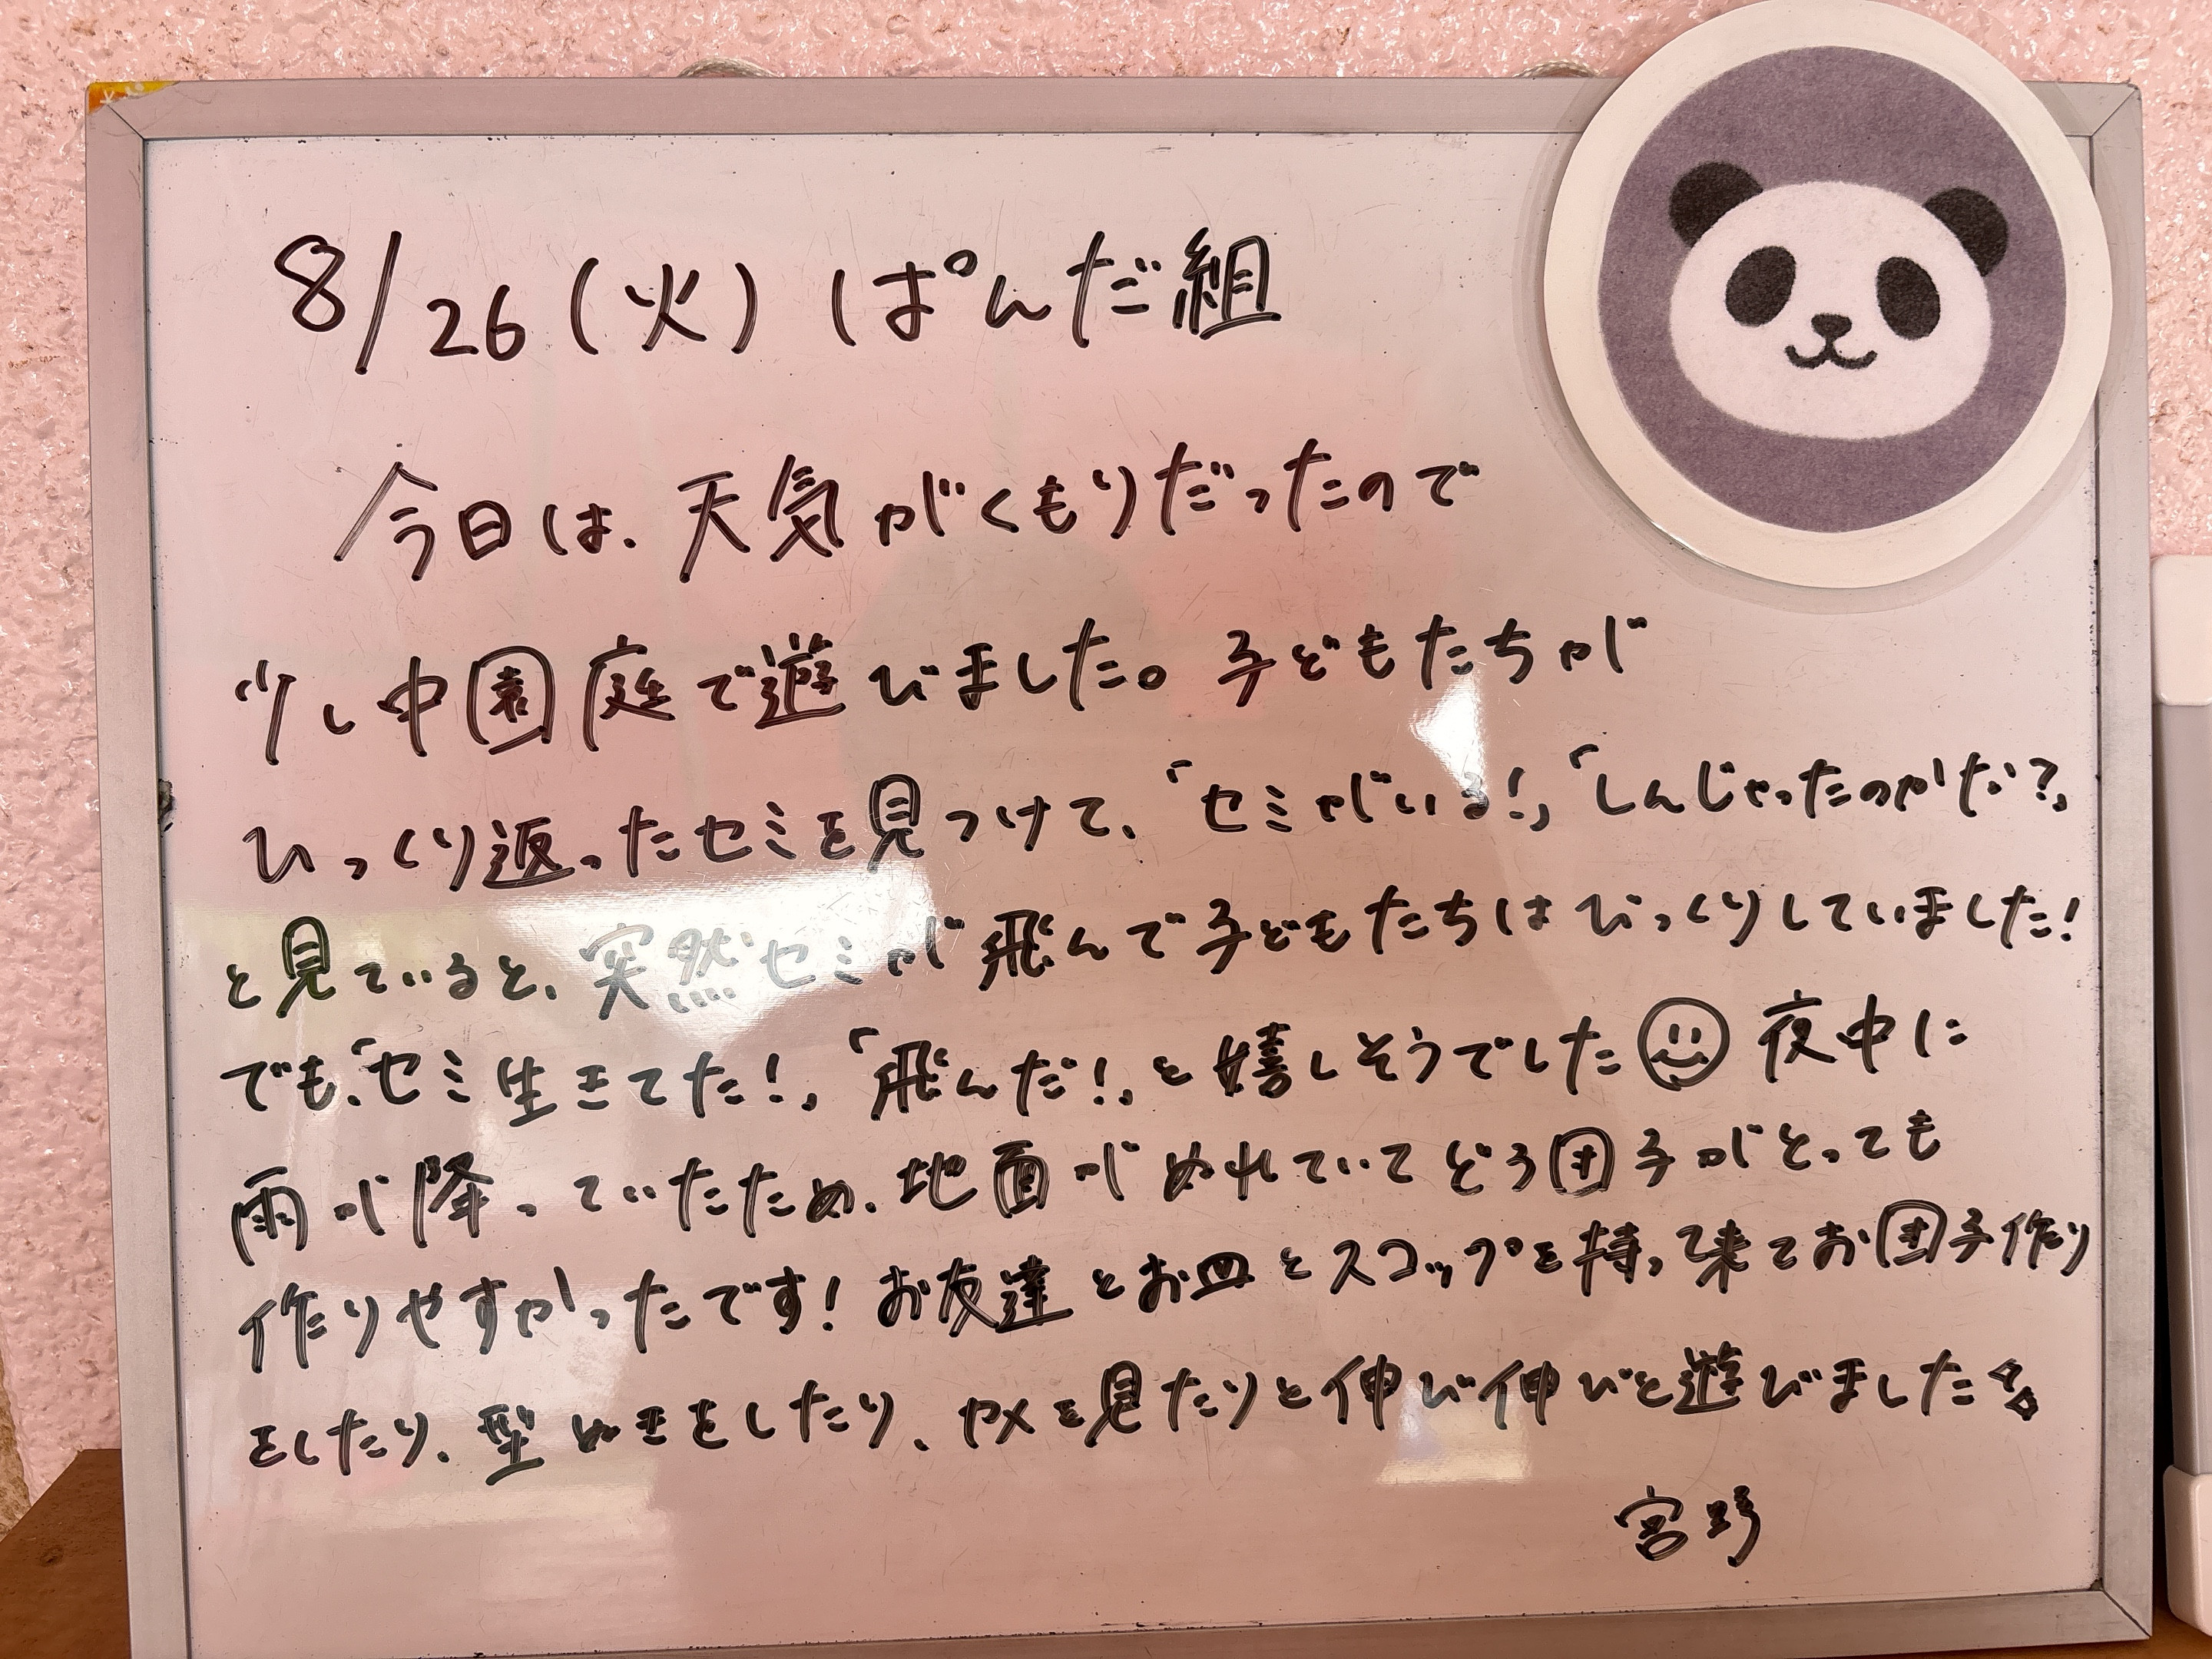 8/26(火) ぱんだ組
今日は、天気がくもりだったので
少し中園庭で遊びました。子どもたちが
ひっくり返ったセミを見つけて、「セミがいる!」「しんじゃったのかな?」
と見ていると、突然セミが飛んで子どもたちはびっくりしていました!
でも、「セミ生きてた!」「飛んだ!」と嬉しそうでした 夜中に
雨が降っていたため、地面がぬれていてどろ団子がとっても
作りやすかったです! お友達とお皿とスコップを持って来てお団子作り
をしたり、型ぬきをしたり、ヤメを見たりと伸び伸びと遊びました
宮野